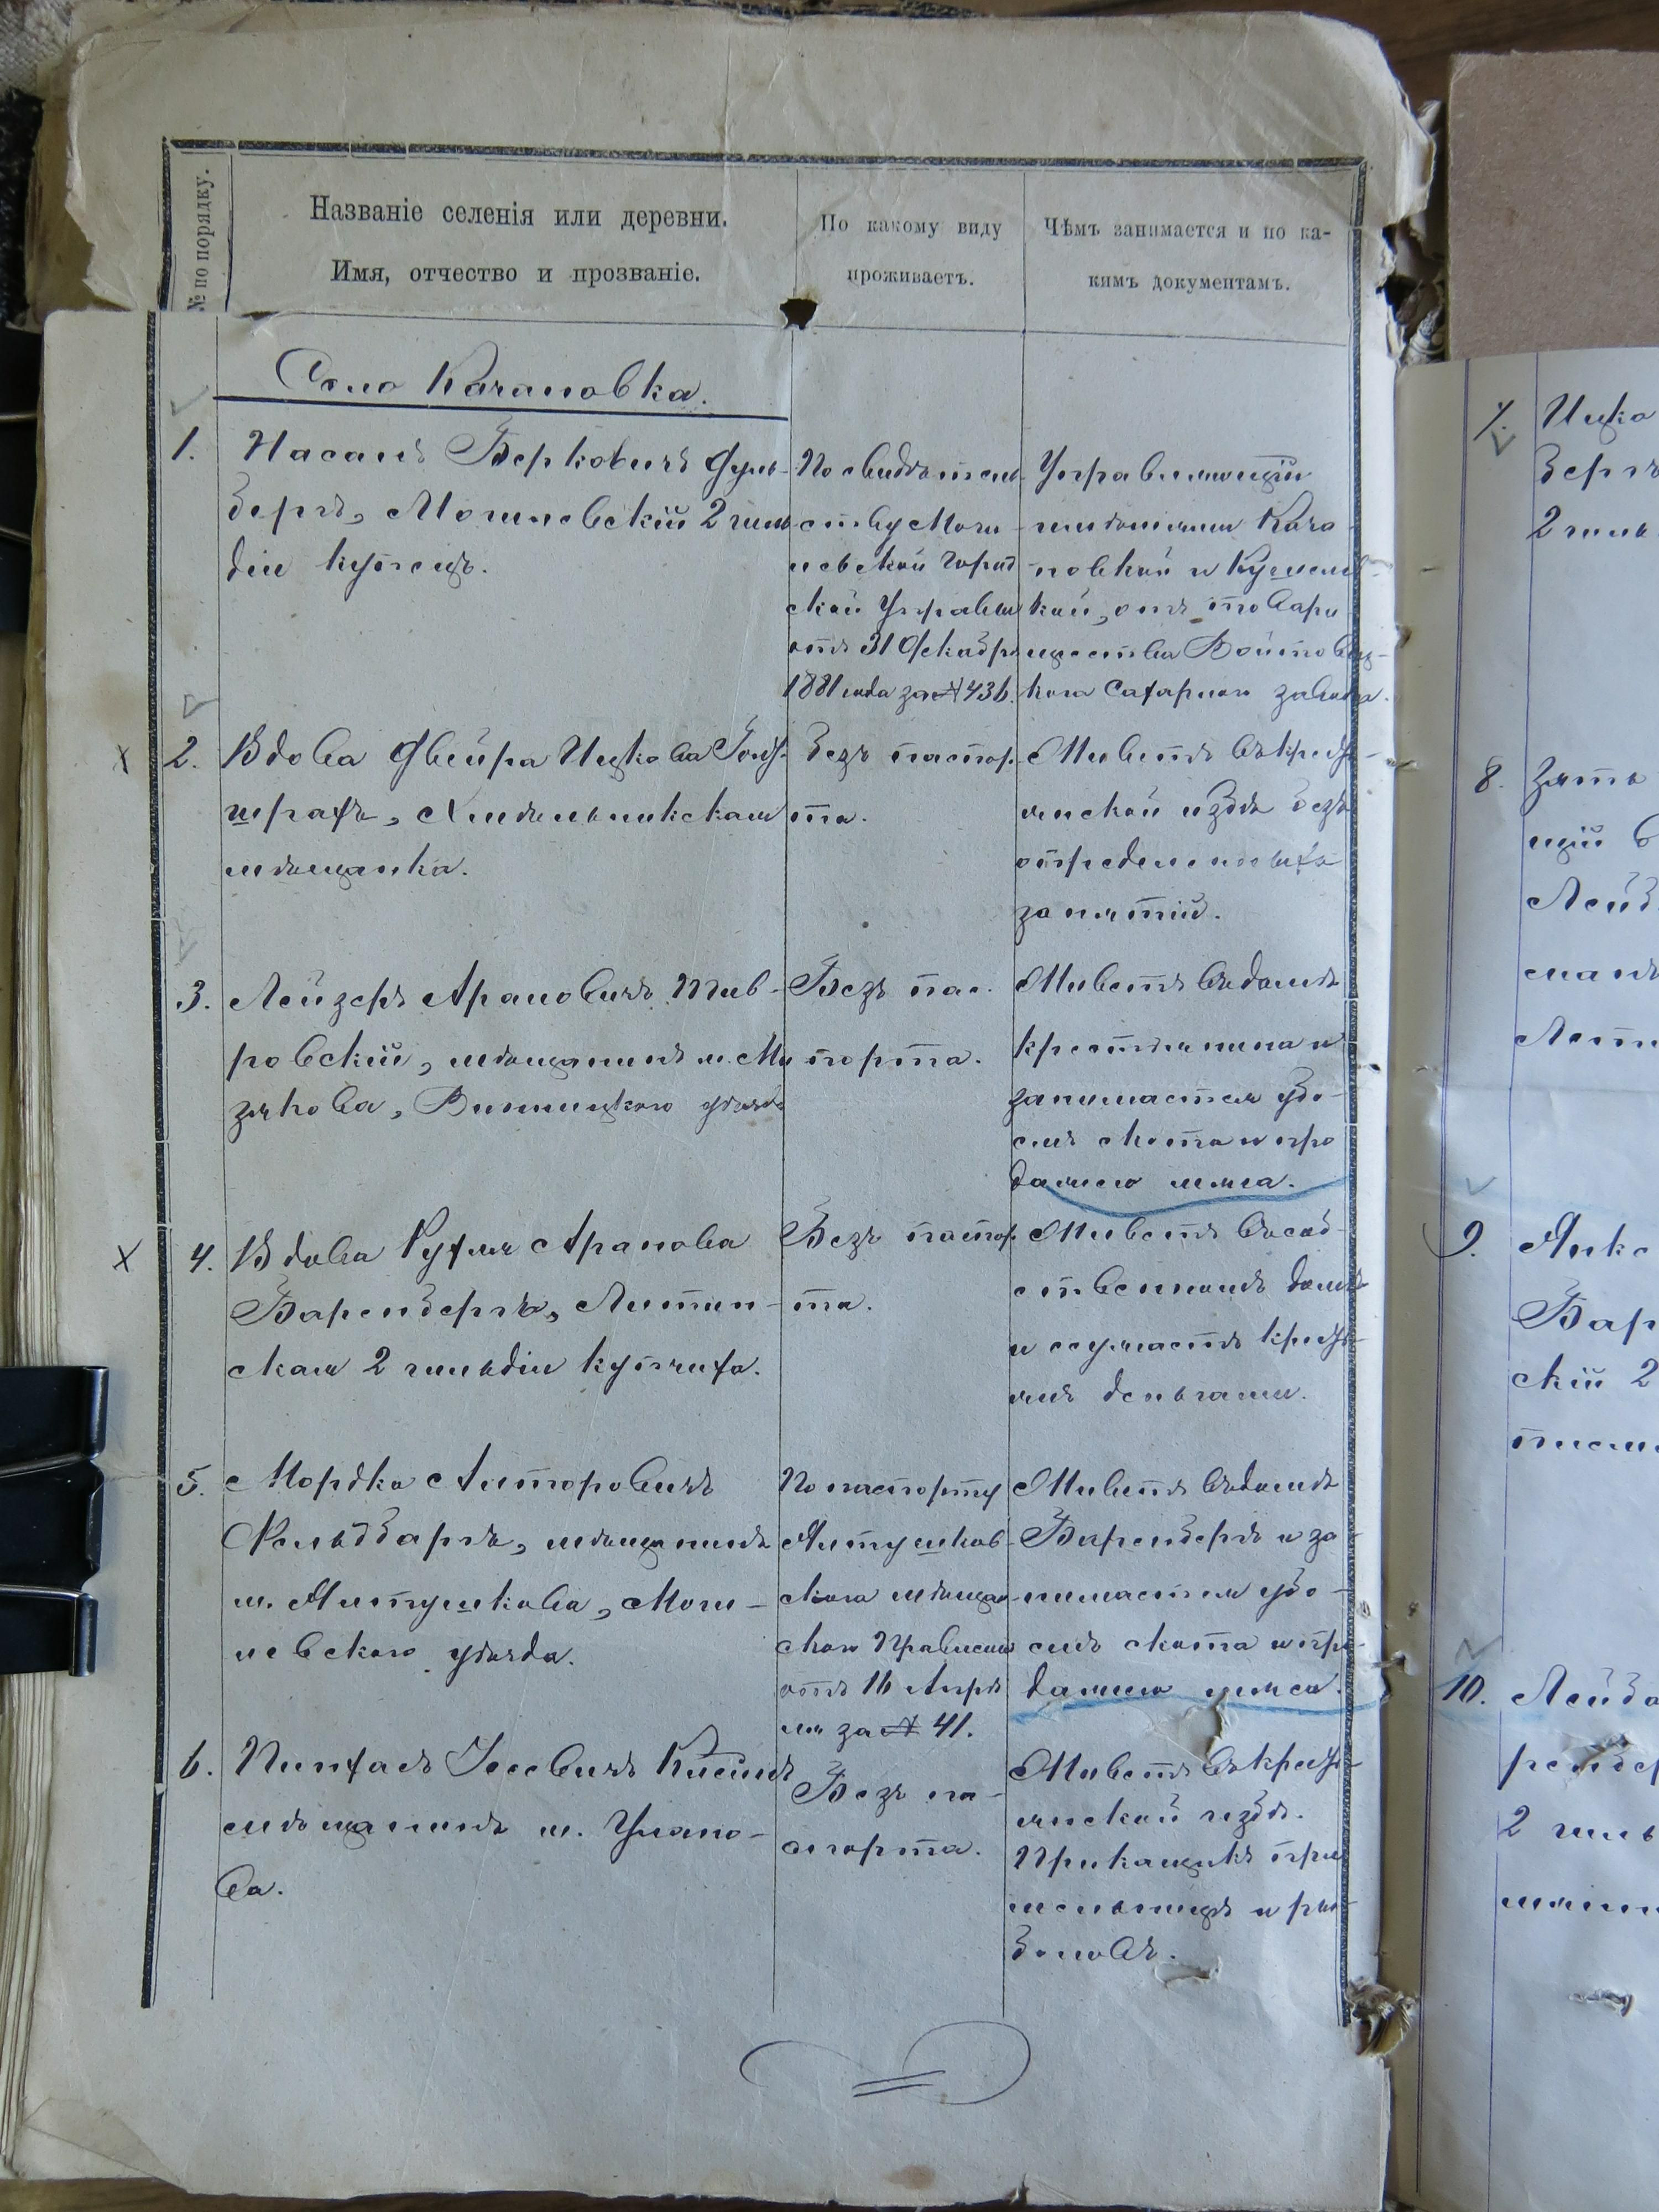 № по порядку.
Названіе селенія или деревни.
Имя, отчество и прозваніе.
По какому виду
проживаетъ.
Чѣмъ занимается и по ка-
кимъ документамъ.
Село Качановка.
1.
Насанъ Берковичъ
берг, Могилевскій 2 гиль
діи купецъ.
По свидѣтель
ству Моги
левской Город
ской Управы
отъ 31 Декабря
1881 года за № 436.
Управляющій
имѣніями Кача
новской и
кой, отъ товари
щества Войтовец-
каго Сахарнаго завода.
2.
Вдова Двейра Ицкова
шрафъ, Хмѣльникская
мѣщанка.
Безъ паспор
та.
Живетъ въ кресть-
янской избѣ безъ
опредѣленныхъ
занятій.
3.
Лейзеръ Ароновичъ Тив-
ровскій, мѣщанинъ м. Ми
зякова, Винницкаго уѣзда
Безъ пас-
порта.
Живетъ въ домѣ
крестьянина и
занимается убо-
емъ скота и про
дажею мяса.
4.
Вдова Рухля Аронова
Баренбергъ, Литин-
ская 2 гильдіи купчиха.
Безъ паспор
та.
Живетъ въ соб-
ственномъ домѣ
и ссужаетъ кресть-
янъ деньгами.
5.
Мордко Анторовичъ
Гольдбаргъ, мѣщанинъ
м. Янтушкова, Моги-
левскаго уѣзда.
По паспорту
Янтушков-
скаго мѣщан-
скаго Правленія
отъ 16 Апрѣ
ля за № 41.
Живетъ въ домѣ
Баренбергъ и за
нимается убо-
емъ скота и про-
дажею мяса.
6.
Пинхасъ Іосевичъ
мѣщанинъ м. Улано-
ва.
Безъ па-
спорта.
Живетъ въ кресть-
янской избѣ.
Прикащикъ при
мельницѣ и ры
боловъ.
7.
Ицко
бергъ
2 гиль
8.
Зять
щій в
Лейб
9.
Янке
Бар
скій 2
10.
Лейба
2 гиль